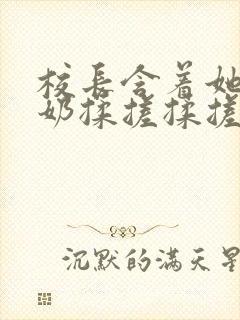 校长含着她
奶揉搓揉搓
沉默的满天星